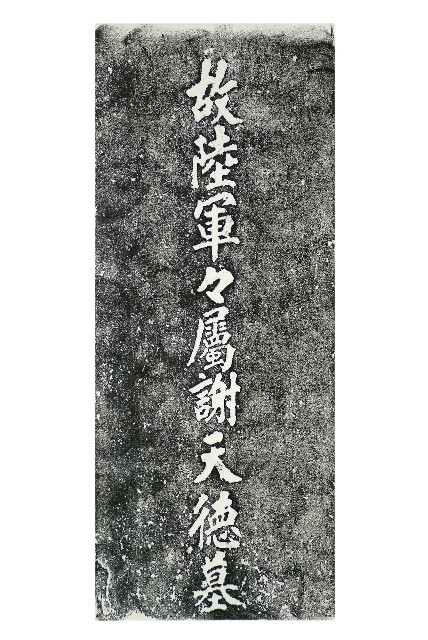 故陸軍々屬謝天德墓